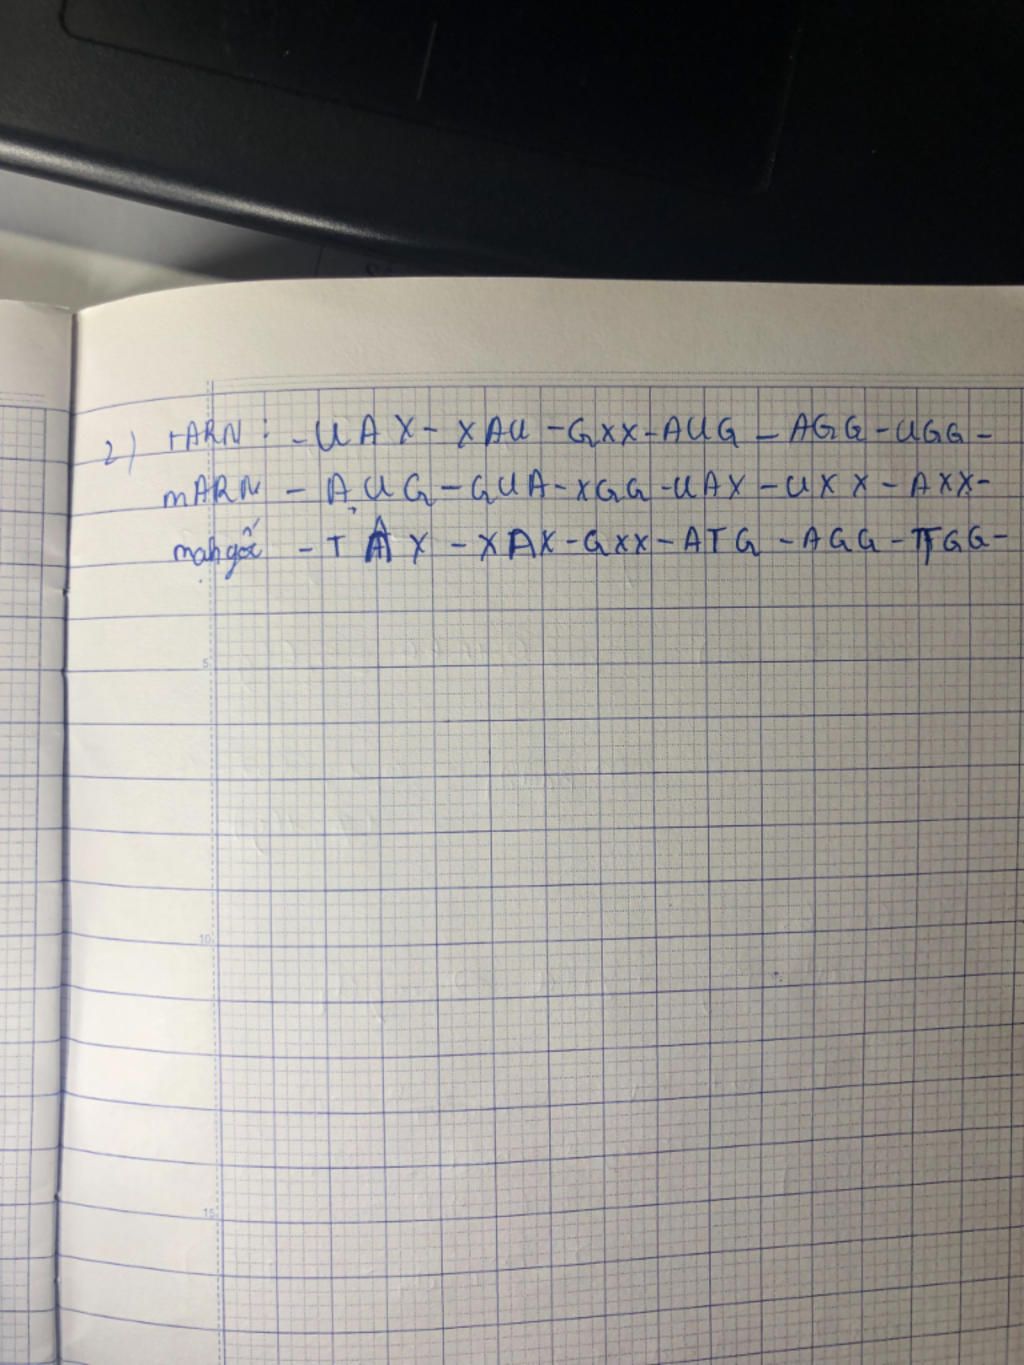 2) tARN : - UAX - XAU - GXX - AUG - AGG - UGG -
mARN - AUG - GUA - XGG - UAX - UXX - AXX -
mạch gốc - TAX - XAX - GXX - ATG - AGG - TGG -
5
10
15